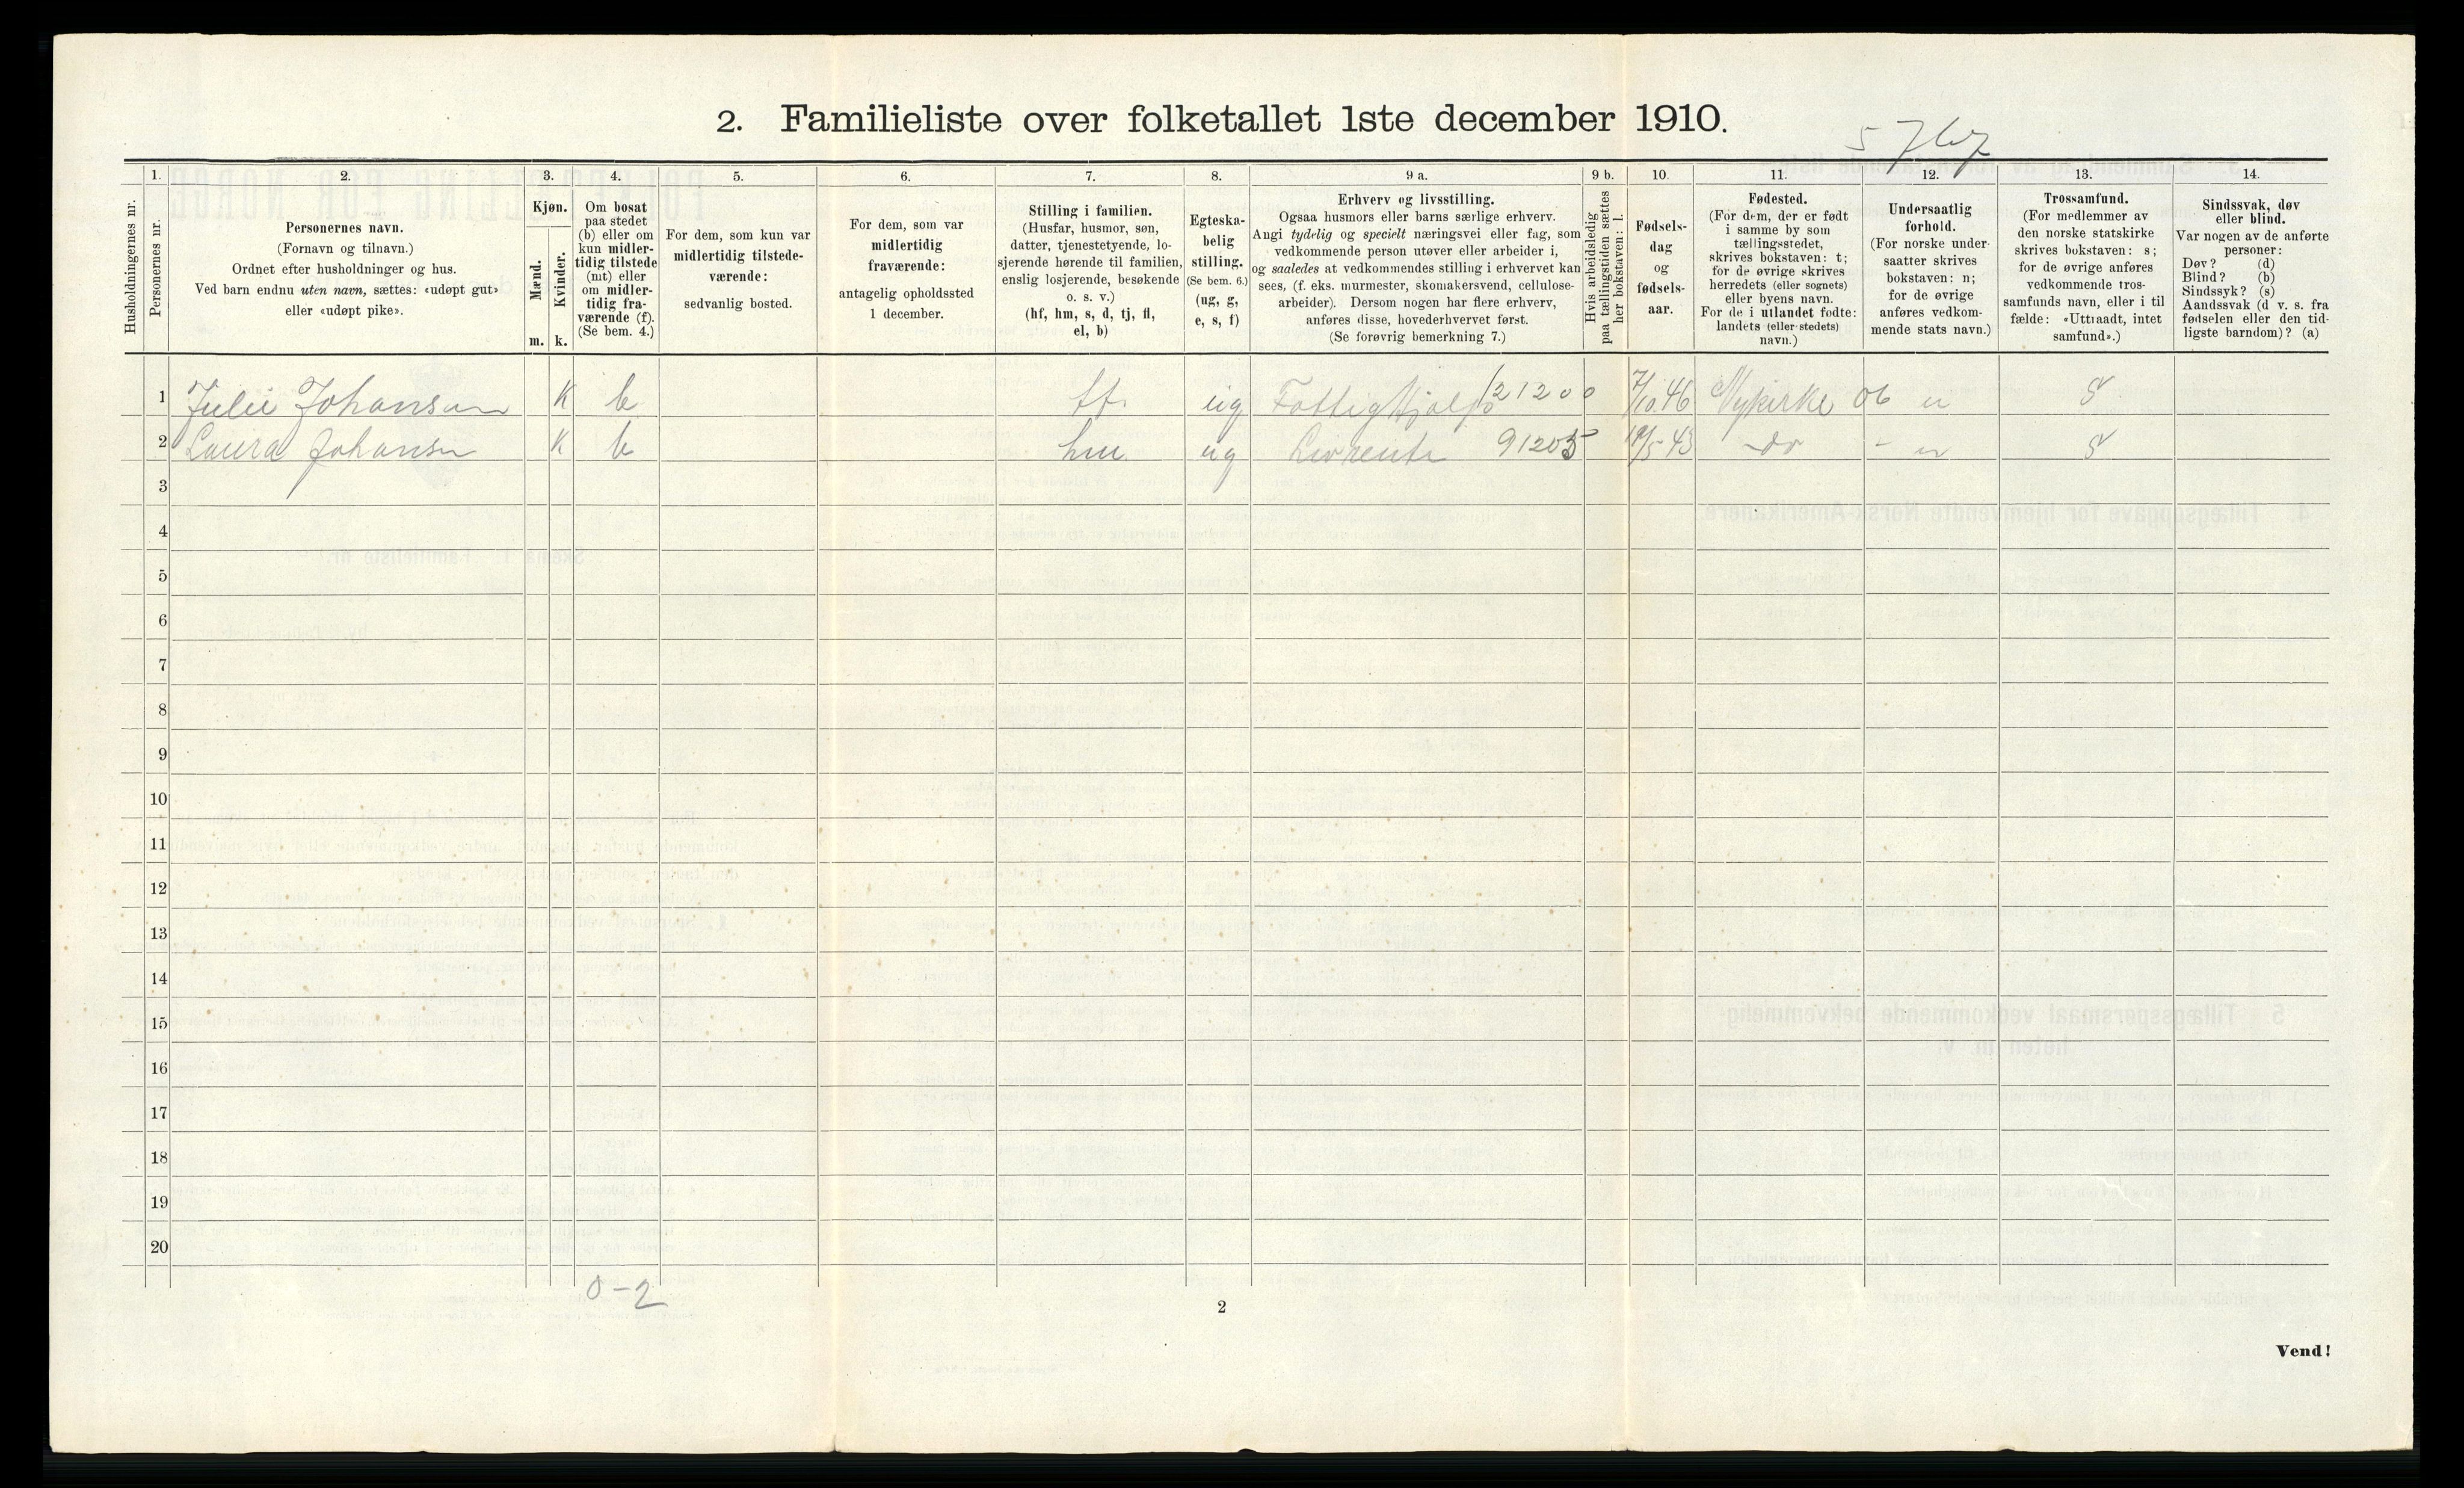 2. Familieliste over folketallet 1ste december 1910.
Husholdningernes nr.
1.
Personernes nr.
2.
Personernes navn.
(Fornavn og tilnavn.)
Ordnet efter husholdninger og hus.
Ved barn endnu uten navn, sættes: «udøpt gut»
eller «udøpt pike».
3.
Kjøn.
Mænd.
m.
Kvinder.
k.
4.
Om bosat
paa stedet
(b) eller om
kun midler-
tidig tilstede
(mt) eller
om midler-
tidig fra-
værende (f).
(Se bem. 4.)
5.
For dem, som kun var
midlertidig tilstede-
værende:
sedvanlig bosted.
6.
For dem, som var
midlertidig
fraværende:
antagelig opholdssted
1 december.
7.
Stilling i familien.
(Husfar, husmor, søn,
datter, tjenestetyende, lo-
sjerende hørende til familien,
enslig losjerende, besøkende
o. s. v.)
(hf, hm, s, d, tj, fl,
el, b)
8.
Egteska-
belig
stilling.
(Se bem. 6.)
(ug, g,
e, s, f)
9 a.
Erhverv og livsstilling.
Ogsaa husmors eller barns særlige erhverv.
Angi tydelig og specielt næringsvei eller fag, som
vedkommende person utøver eller arbeider i,
og saaledes at vedkommendes stilling i erhvervet kan
sees, (f. eks. murmester, skomakersvend, cellulose-
arbeider). Dersom nogen har flere erhverv,
anføres disse, hovederhvervet først.
(Se forøvrig bemerkning 7.)
9 b.
Hvis arbeidsledig
paa tællingstiden sættes
her bokstaven: l.
10.
Fødsels-
dag
og
fødsels-
aar.
11.
Fødested.
(For dem, der er født
i samme by som
tællingsstedet,
skrives bokstaven: t;
for de øvrige skrives
herredets (eller sognets)
eller byens navn.
For de i utlandet fødte:
landets (eller stedets)
navn.)
12.
Undersaatlig
forhold.
(For norske under-
saatter skrives
bokstaven: n;
for de øvrige
anføres vedkom-
mende stats navn.)
13.
Trossamfund.
(For medlemmer av
den norske statskirke
skrives bokstaven: s;
for de øvrige anføres
vedkommende tros-
samfunds navn, eller i til
fælde: «Uttraadt, intet
samfund».)
14.
Sindssvak, døv
eller blind.
Var nogen av de anførte
personer:
Døv? (d)
Blind? (b)
Sindssyk? (s)
Aandssvak (d v. s. fra
fødselen eller den tid-
ligste barndom)? (a)
1 Julie Johansen K b ug Fattighjælp 21200 7/10.46 Nykirke 06 n S
2 Laura Johansen K b hm ug Livrente 91205 19/5-43 -do - n S
3
4
5
6
7
8
9
10
11
12
13
14
15
16
17
18
19
20
0-2
2
Vend!